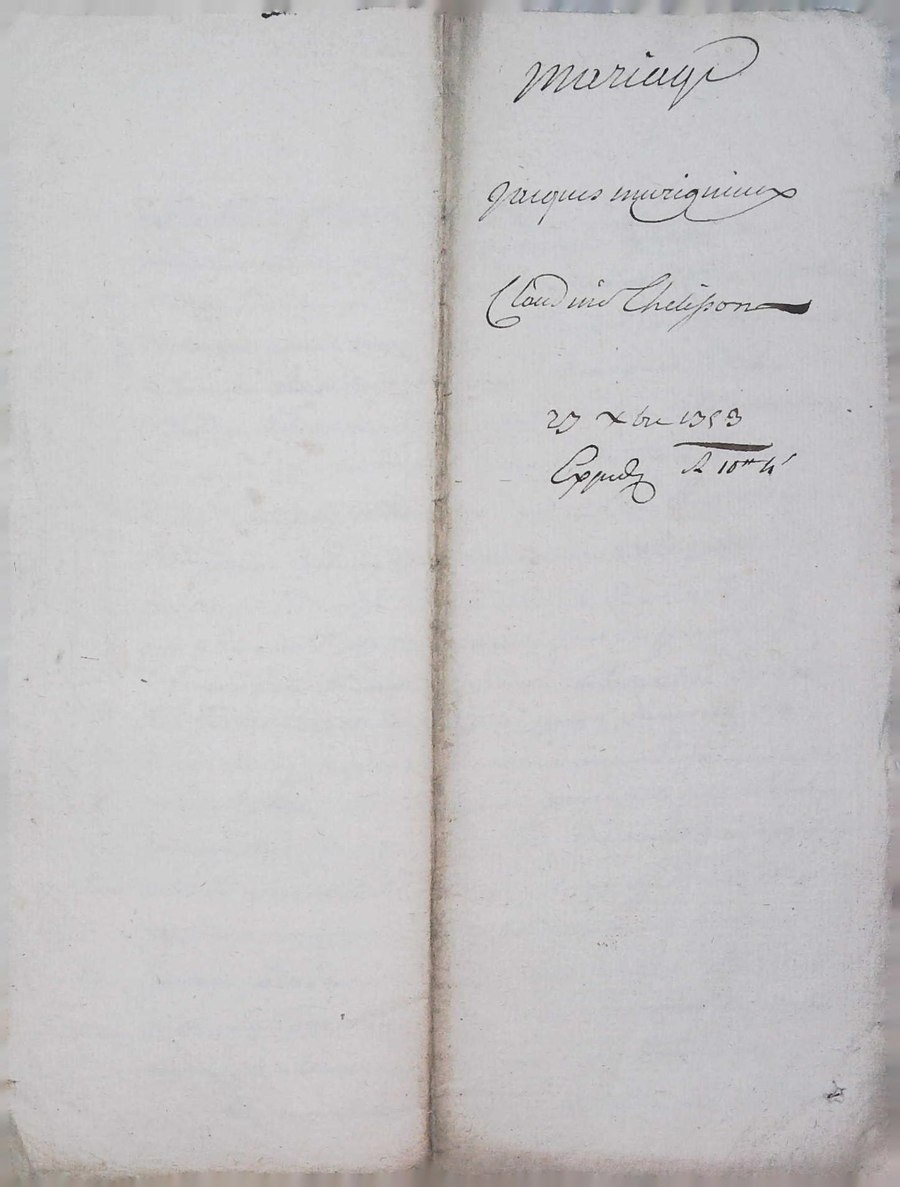 mariage
Jacques murignieux
Claudine Thelisson
27 xbre 1753
Expedié R 10# 4s